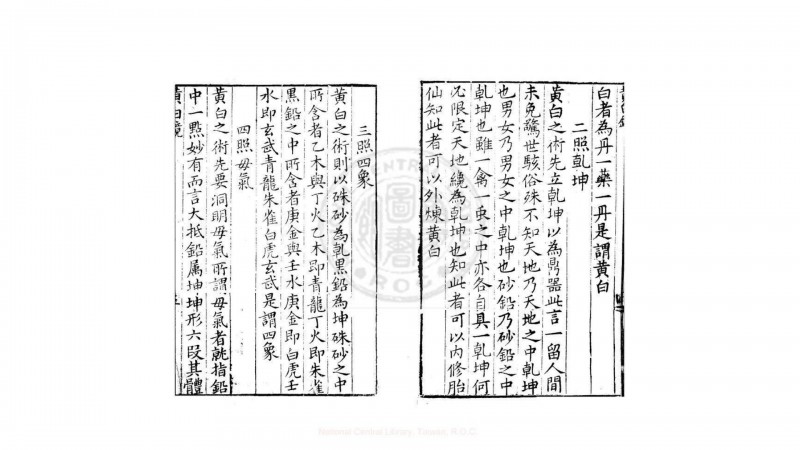 白者為丹一藥一丹是謂黃白
二照乹坤
黃白之術先立乹坤以為鼎器此言一留人間
未免驚世駭俗殊不知天地乃天地之中乹坤
也男女乃男女之中乹坤也砂鉛乃砂鉛之中
乹坤也雖一禽一䖝之中亦各自具一乹坤何
必限定天地纔為乹坤也知此者可以內修胎
仙知此者可以外煉黃白
三照四象
黃白之術則以硃砂為乹黑鉛為坤硃砂之中
所含者乙木與丁火乙木即青龍丁火即朱雀
黑鉛之中所含者庚金與壬水庚金即白虎壬
水即玄武青龍朱雀白虎玄武是謂四象
四照母氣
黃白之術先要洞明母氣所謂母氣者就指鉛
中一點妙有而言大抵鉛属坤坤形六叚其體
黃白鏡
National Central Library, Taiwan, R.O.C.